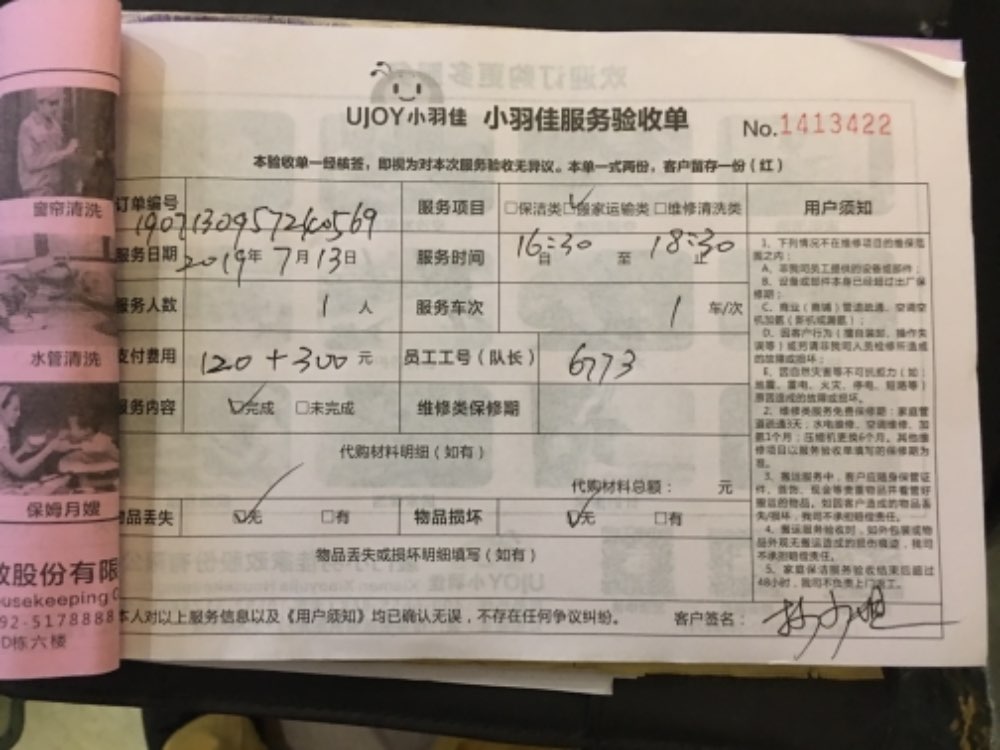 UJOY小羽佳 小羽佳服务验收单 No.1413422
本验收单一经核签，即视为对本次服务验收无异议。本单一式两份，客户留存一份（红）
订单编号 服务项目 □保洁类 ☑搬家运输类 □维修清洗类 用户须知
服务日期 2019年7月13日 服务时间 16:30 自 至 18:30 止
服务人数 1 人 服务车次 1 车/次
支付费用 120+300 元 员工工号（队长） 6773
服务内容 ☑完成 □未完成 维修类保修期
代购材料明细（如有）
代购材料总额： 元
物品丢失 ☑无 □有 物品损坏 ☑无 □有
物品丢失或损坏明细填写（如有）
本人对以上服务信息以及《用户须知》均已确认无误，不存在任何争议纠纷。 客户签名：
1、下列情况不在维修项目的维保范
围之内：
A、非我司员工提供的设备或部件；
B、设备或部件本身已经超过出厂保
修期；
C、商业（商铺）管道疏通、空调空
机加氨（新机或漏氨）；
D、因客户行为（擅自装卸、操作失
误等）或另请非我司人员检修所造成
的故障或损坏；
E、因自然灾害等不可抗能力（如：
地震、雷电、火灾、停电、短路等）
原因造成的故障或损坏。
2、维修类服务免费保修期：家庭管
道疏通3天；水电维修、空调维修、加
氨1个月；压缩机更换6个月。其他维
修项目以服务验收单填写的保修期为
准。
3、搬运服务中，客户应随身保管证
件、首饰、现金等贵重物品并看管好
搬运的物品。如因客户造成的物品丢
失/损坏，我司不承担赔偿责任。
4、搬运服务验收时，如外包装或物
品外观无搬运造成的损伤痕迹，我司
不承担赔偿责任。
5、家庭保洁服务验收结束后超过
48小时，我司不负责上门返工。
窗帘清洗
水管清洗
保姆月嫂
政股份有限
ousekeeping
92-5178888
D栋六楼